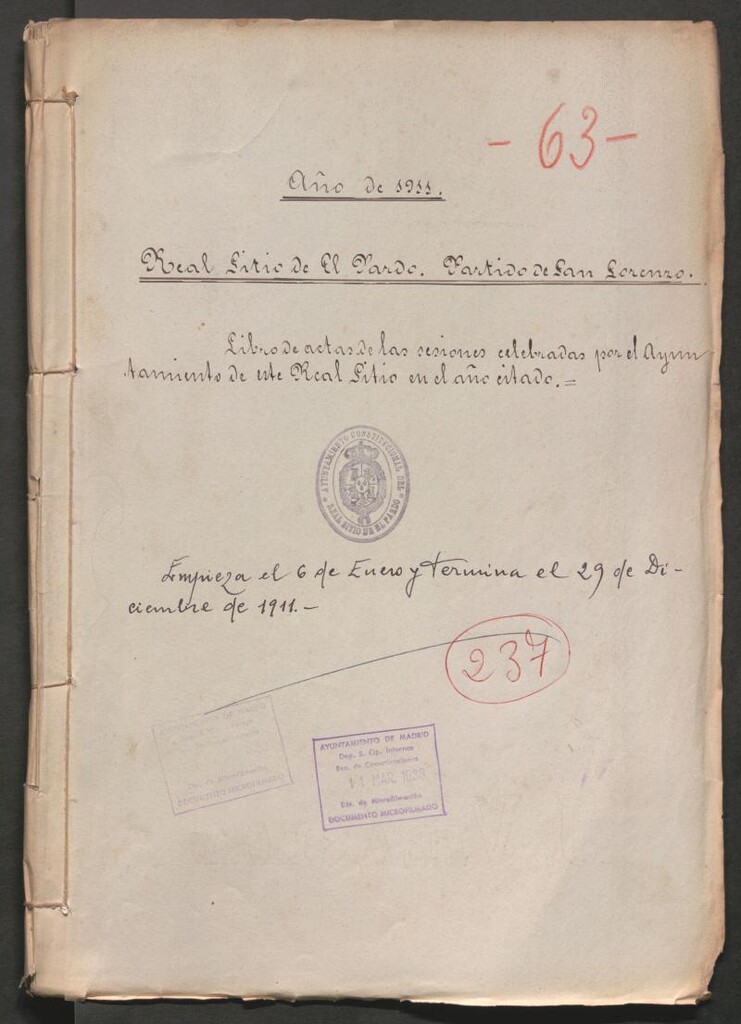 - 63 -
Año de 1911.
Real Sitio de El Pardo. Partido de San Lorenzo.
Libro de actas de las sesiones celebradas por el Ayun
tamiento de este Real Sitio en el año citado. =
AYUNTAMIENTO CONSTITUCIONAL DEL
REAL SITIO DE EL PARDO
Empieza el 6 de Enero y termina el 29 de Di-
ciembre de 1911. -
237
AYUNTAMIENTO DE MADRID
Dep. S. Op. Internos
11 MAR.
Dto. de Microfilmación
DOCUMENTO MICROFILMADO
AYUNTAMIENTO DE MADRID
DOCUMENTO MICROFILMADO